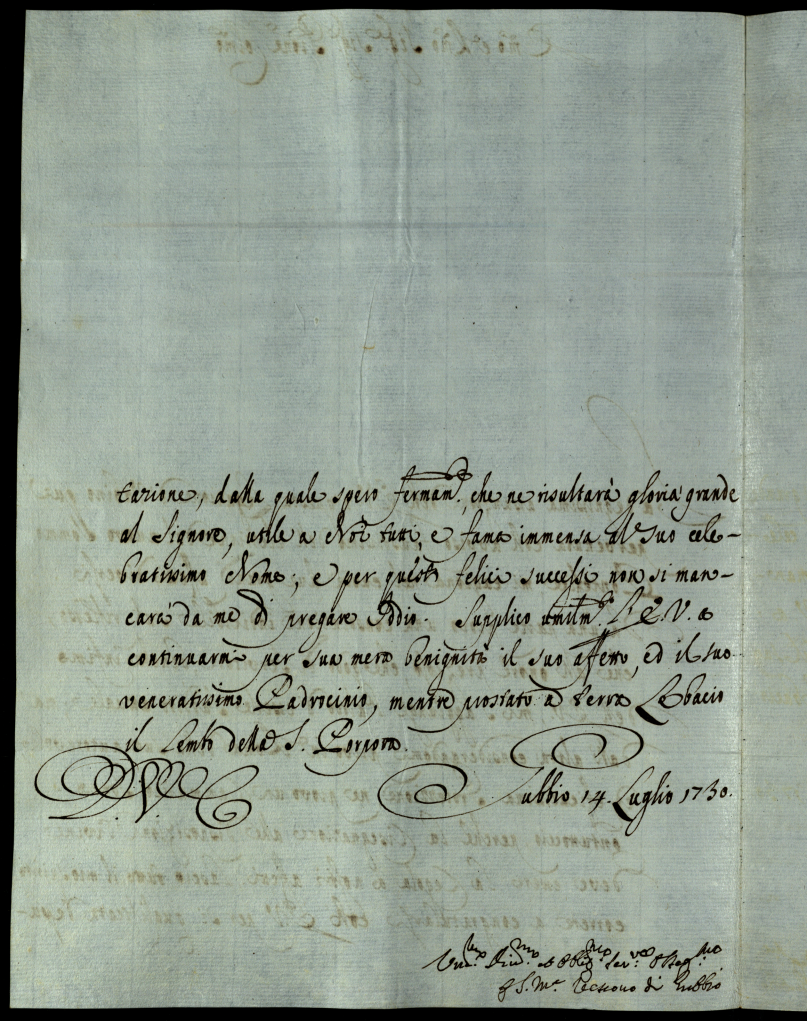 tazione, dalla quale spero fermam.e, che ne risultarà gloria grande
al Signore, utile a Noi tutti, e fama immensa al suo cele-
bratissimo Nome; e per questi felici successi non si man-
carà da me di pregare Iddio. Supplico umilm.e L'E.V. a
continuarmi per sua mera benignità il suo affetto, ed il suo
veneratissimo Padrocinio, mentre prostato a terra Le bacio
il Lembo della S. Porpora.
D. V. E.
Gubbio 14. Luglio 1730.
Um.mo Div.mo ed Obblig.mo Ser.re Osseq.mo
S. M.a Vescovo di Gubbio